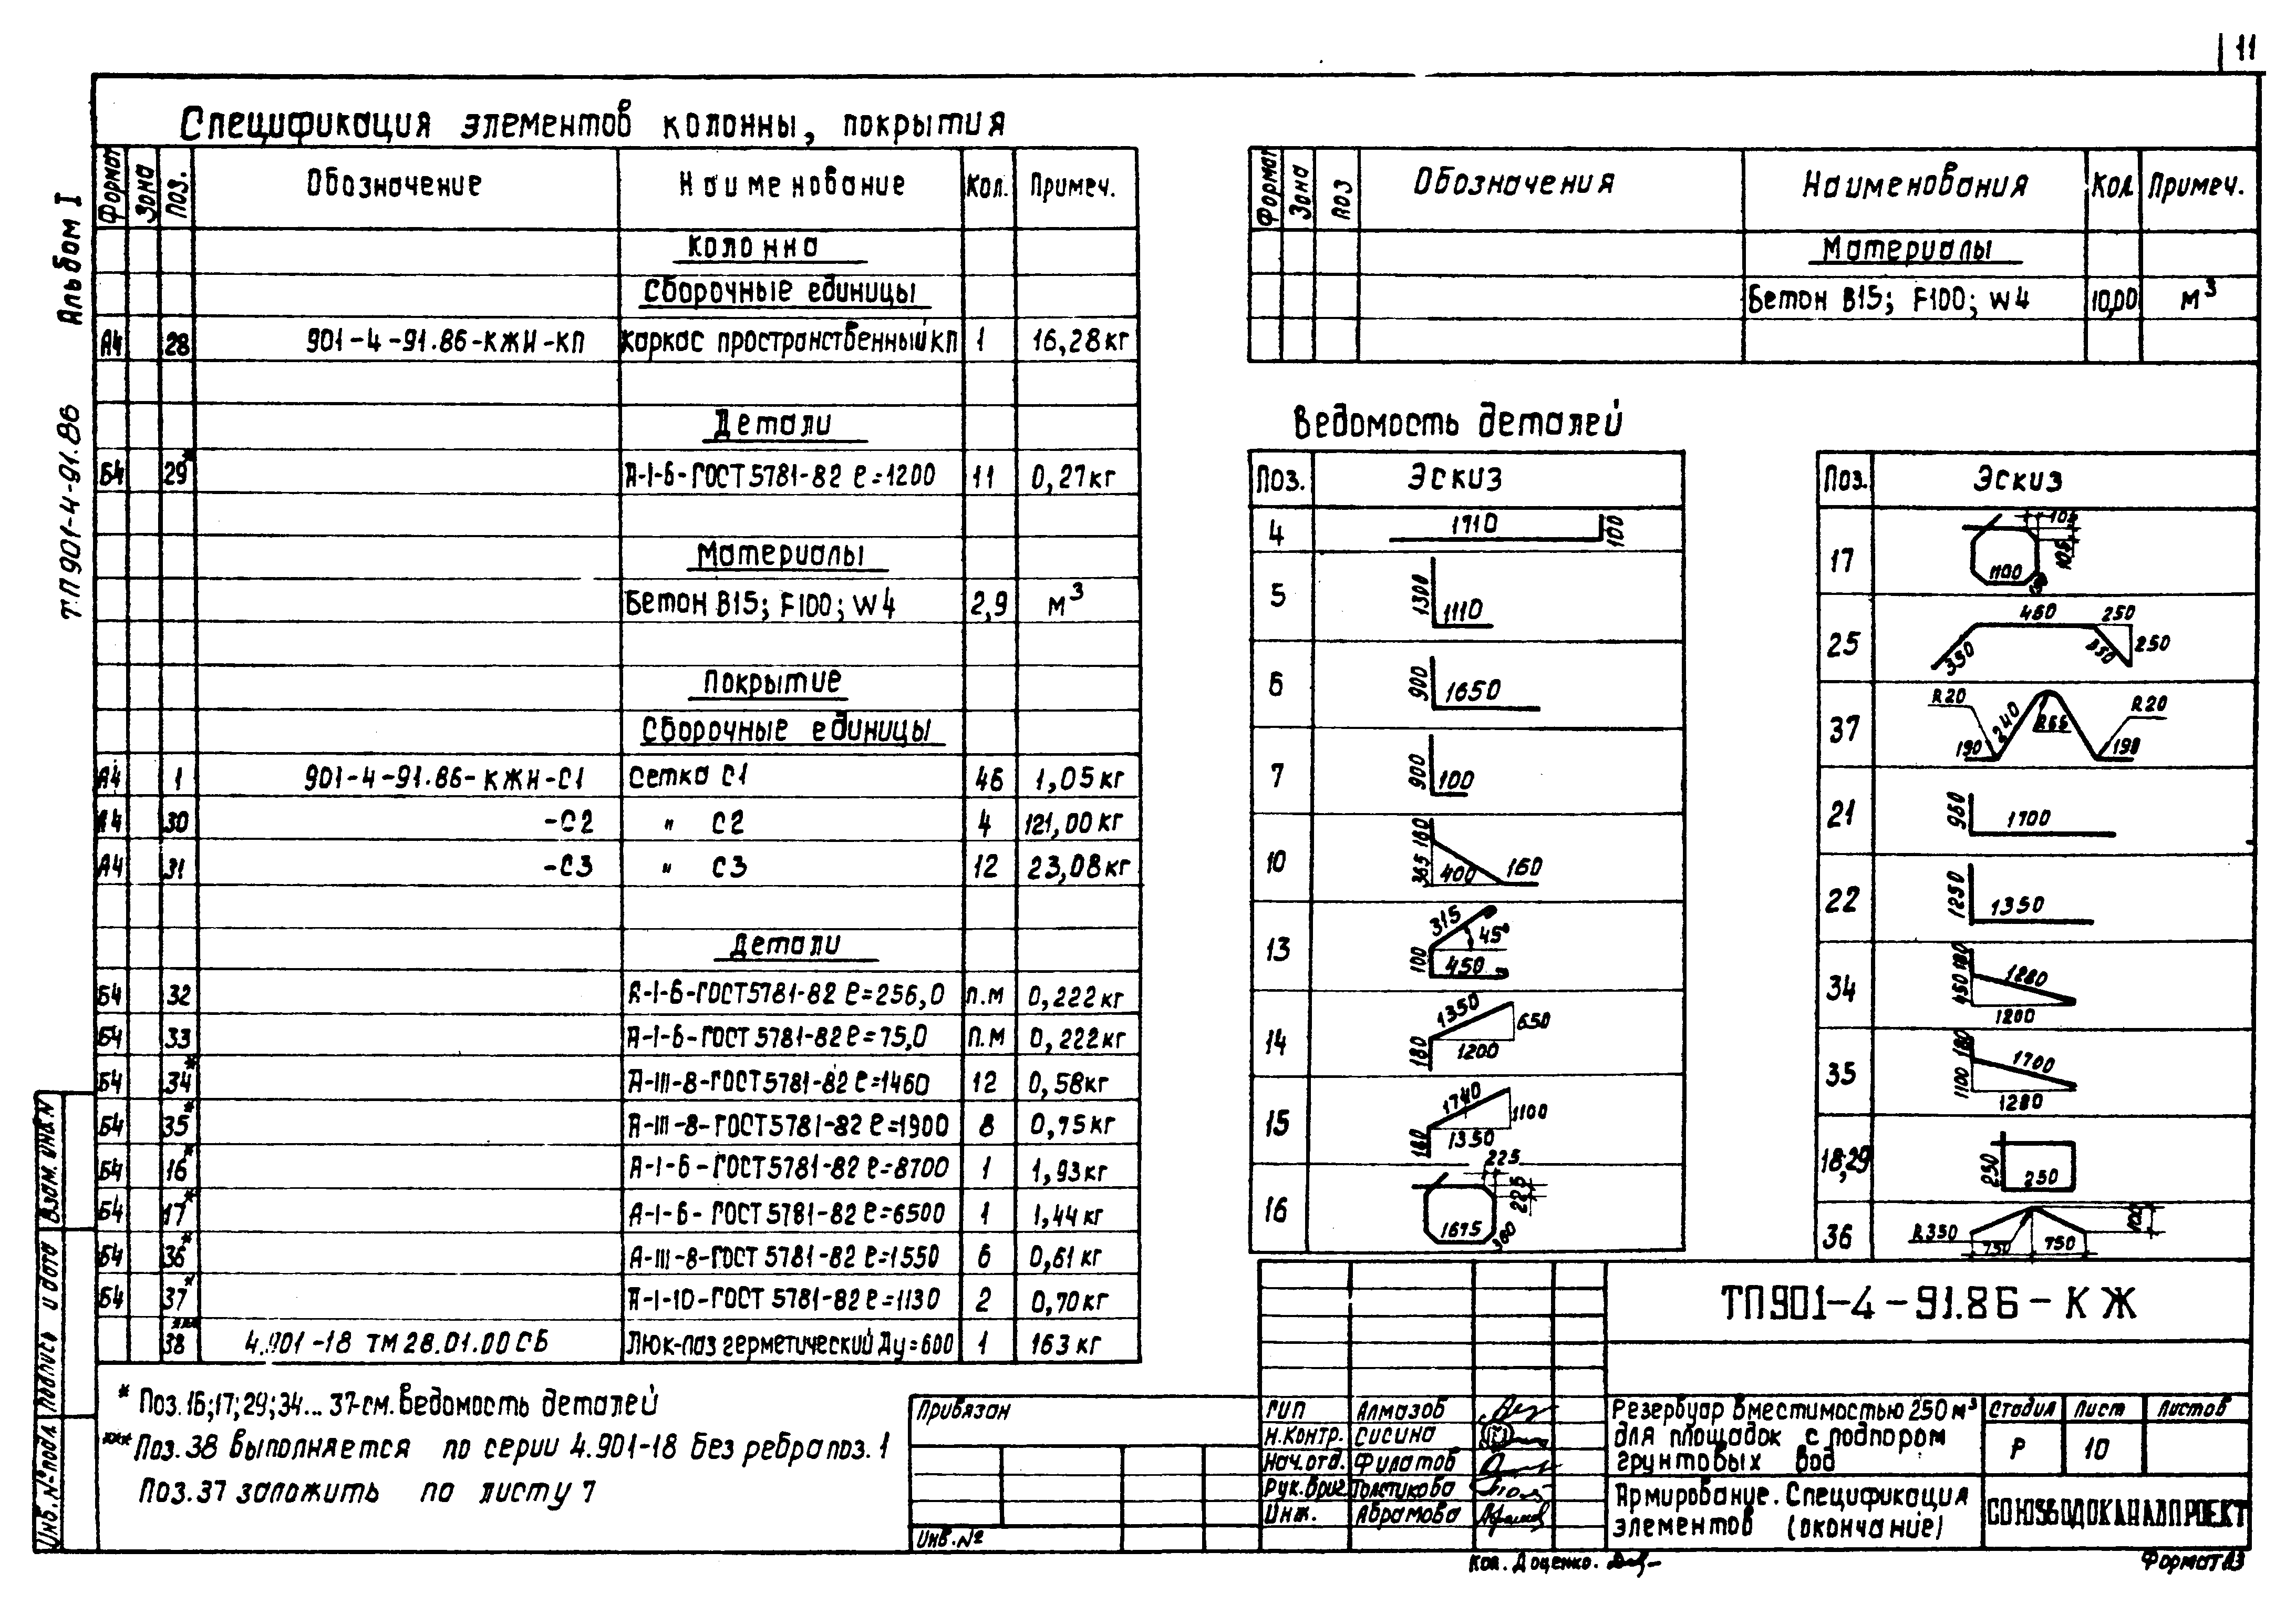 11
Альбом I
ТП 901-4-91.86
Спецификация элементов колонны, покрытия
Формат Зона Поз. Обозначение Наименование Кол. Примеч.
Колонна
Сборочные единицы
А4 28 901-4-91.86-КЖИ-КП Каркас пространственный КП 1 16,28 кг
Детали
Б4 29* А-I-6-ГОСТ 5781-82 ℓ=1200 11 0,27 кг
Материалы
Бетон В15; F100; W4 2,9 м³
Покрытие
Сборочные единицы
А4 1 901-4-91.86-КЖИ-С1 Сетка С1 46 1,05 кг
А4 30 -С2 " С2 4 121,00 кг
А4 31 -С3 " С3 12 23,08 кг
Детали
Б4 32 А-I-6-ГОСТ 5781-82 ℓ=256,0 п.м 0,222 кг
Б4 33 А-I-6-ГОСТ 5781-82 ℓ=75,0 п.м 0,222 кг
Б4 34* А-III-8-ГОСТ 5781-82 ℓ=1460 12 0,58 кг
Б4 35* А-III-8-ГОСТ 5781-82 ℓ=1900 8 0,75 кг
Б4 16* А-I-6-ГОСТ 5781-82 ℓ=8700 1 1,93 кг
Б4 17* А-I-6-ГОСТ 5781-82 ℓ=6500 1 1,44 кг
Б4 36* А-III-8-ГОСТ 5781-82 ℓ=1550 6 0,61 кг
Б4 37* А-I-10-ГОСТ 5781-82 ℓ=1130 2 0,70 кг
38*** 4.901-18 ТМ 28.01.00 СБ Люк-лаз герметический Ду=600 1 163 кг
* Поз. 16; 17; 29; 34... 37-см. Ведомость деталей
*** Поз. 38 выполняется по серии 4.901-18 без ребра поз. 1
Поз. 37 заложить по листу 7
Формат Зона Поз Обозначения Наименования Кол. Примеч.
Материалы
Бетон В15; F100; W4 10,00 м³
Ведомость деталей
Поз. Эскиз
4 1710 100
5 1300 1110
6 900 1650
7 900 100
10 180 365 400 160
13 315 45° 100 450
14 1350 650 180 1200
15 1740 1100 180 1350
16 225 225 1675 300
Поз. Эскиз
17 105 1100
25 460 250 350 250
37 R20 240 R66 R20 190 190
21 950 1700
22 1250 1350
34 180 450 1280 1200
35 180 1100 1700 1280
18,29 250 250
36 R350 750 750 100
ТП901-4-91.86-КЖ
Привязан
Инв. №
ГИП Алмазов
Н.контр. Сисина
Нач.отд. Филатов
Рук.бриг. Толстикова
Инж. Абрамова
Резервуар вместимостью 250 м³
для площадок с подпором
грунтовых вод
Стадия Лист Листов
Р 10
Армирование. Спецификация
элементов (окончание)
СОЮЗВОДОКАНАЛПРОЕКТ
Коп. Доценко.
Формат А3
Взам. инв.N
Подпись и дата
Инв. № подл